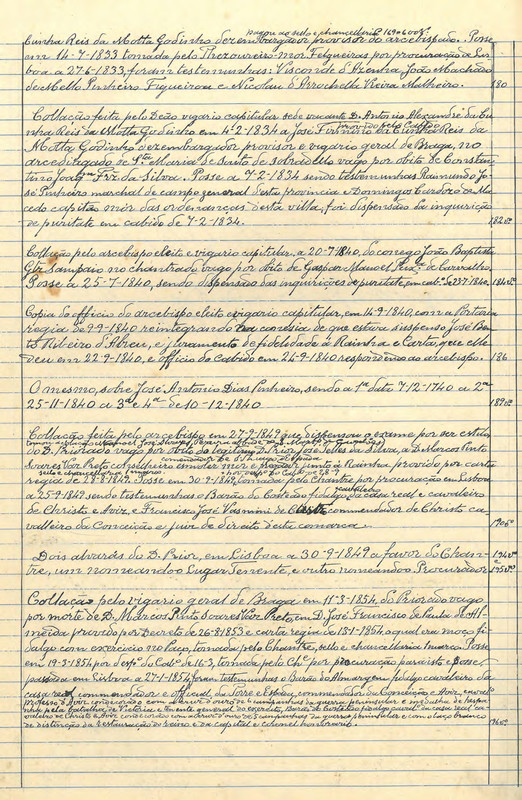 pagou ao sello e chancellaria 169$600 rs.
Cunha Reis da Motta Godinho dezembargador provisor do arcebispado. Posse
em 14-7-1833 tomada pelo Thezoureiro-mor Felgueiras por procuração de Lis-
boa a 27-6-1833, foram testemunhas: Visconde d'Azenha, João Machado
de Mello Pinheiro Figueiroa e Nicolau d'Arrochella Vieira Malheiro. 180
Collação feita pelo Deão vigario capitular sede vacante D. Antonio Alexandre da Cu-
provido pelo Cabido
nha Reis da Motta Godinho em 4-2-1834 a José Firmino da Cunha Reis da
Motta Godinho dezembargador provisor e vigario geral de Braga, no
arcediagado de Sta Maria de Souto de Sobradello vago por obito de Constan-
tino Joaqm Frz da Silva. Posse a 7-2-1834 sendo testemunhas Raimundo Jo-
sé Pinheiro marchal de campo general desta provincia e Domingos Cardozo de Ma-
cedo capitão mór das ordenanças desta villa, foi dispensado da inquirição
de puritate em cabido de 7-2-1834. 182 vº
Collação pelo arcebispo eleito e vigario capitular, a 20-7-1840, do conego João Baptista
Glz Sampaio no chantrado vago por obito de Gaspar Manoel Peixº de Carvalho
Posse a 25-7-1840, sendo dispensado das inquirições de puritate, em cabº de 23-7-1840. 184 vº
Copia do officio do arcebispo eleito e vigario capitular, em 14-9-1840, com a Portaria
regia de 9-9-1840 reintegrando na conesia de que estava suspenso José Ben-
to Ribeiro d'Abreu, e juramento de fidelidade á Rainha e Carta, que elle
deu em 22-9-1840, e officio do Cabido em 26-9-1840 respondendo ao arcebispo. 186
O mesmo, sobre José Antonio Dias Pinheiro, sendo a 1ª data 7-12-1740 a 2ª
25-11-1840 a 3ª e 4ª de 10-12-1840 189 vº
Collação feita pelo arcebispo em 27-9-1849 que dispensou o exame por ser
do D. Priorado vago por obito do legitimo D. Prior José Telles da Silva, a D. Marcos Pinto
Soares Vaz Preto conselheiro esmoler mor e junto á Rainha provido por carta
sello e chancellaria
regia de 28-8-1849. Posse em 30-9-1849, tomada pelo Chantre por procuração em Lisboa
a 25-9-1849 sendo testemunhas o Barão do Costeado fidalgo da casa real e cavalleiro
de Christo e Aviz, e Francisco José Vasmini de commendador de Christo ca-
valleiro da Conceição e juiz de direito desta comarca. 190 vº
Dois alvarás do D. Prior, em Lisboa a 30-9-1849 a favor do Chan- 194 vº
tre, um nomeando-o Lugar Tenente, e outro nomeando-o Procurador 195 vº
Collação pelo vigario geral de Braga em 11-3-1854, do Priorado vago
por morte de D. Marcos Pinto Soares Vaz Preto, em D. José Francisco de Paula de Al-
meida provido por Decreto de 26-8-1853 e carta regia de 18-1-1854, o qual era moço fi-
dalgo com exercicio no Paço, tomada pelo Chantre, sello e chancellaria marco. Posse
em 19-3-1854 por despº do Cabº de 16-3, tomada pelo Chº por procuração para isto e posse,
passada em Lisboa a 27-1-1854, eram testemunhas o Barão do Almargem fidalgo cavalleiro da
casa real, commendador e official da Torre e Espada, commendador da Conceição e Aviz, cavall-
professo d'Aviz, condecorado com a cruz d'ouro de 6 campanhas da guerra peninsular e medalha de hespa-
nha pela batalha de Victoria e tenente general do exercito, Barão do Costeado fidalgo caval. da casa real ca-
valleiro de Christo e Aviz condecorado com a cruz d'ouro de 3 campanhas da guerra peninsular e com o laço branco
de distincção da restauração do reino e da capital e coronel honorario. 196 vº